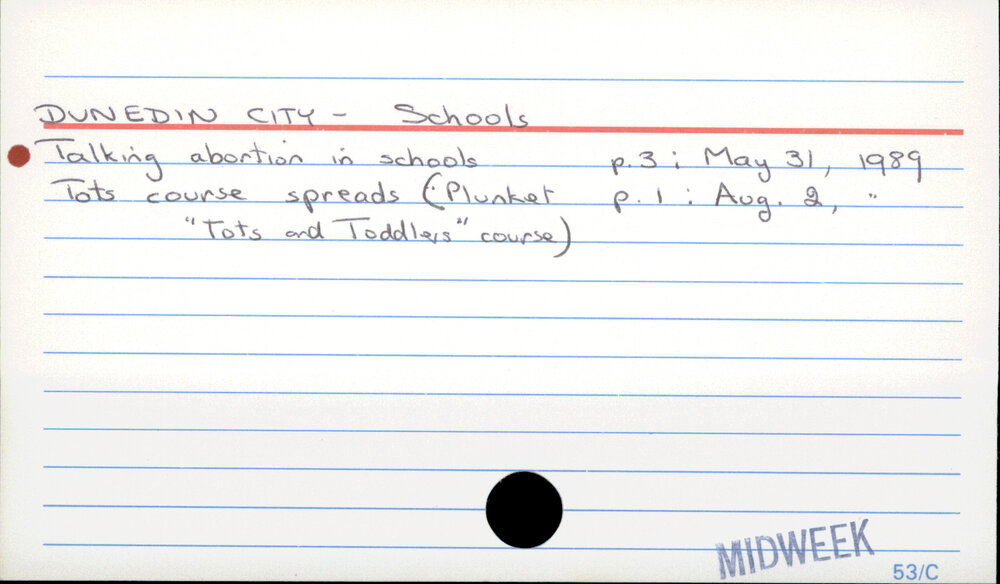 DUNEDIN CITY - Schools
Talking abortion in schools p.3; May 31, 1989
Tots course spreads (Plunket p.1: Aug. 2, "
"Tots and Toddlers" course)
MIDWEEK
53/C